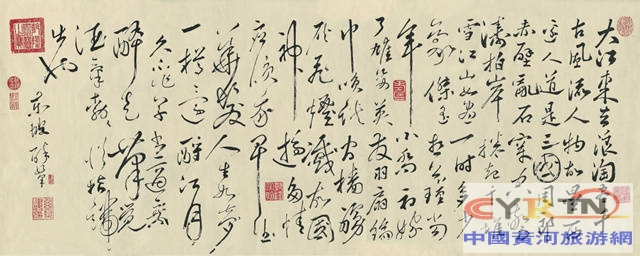 大江東去浪淘盡千
古風流人物故壘西
邊人道是三國周郎
赤壁亂石穿空驚
濤拍岸捲起千堆
雪江山如畫一時多少
豪傑遙想公瑾當
年小喬初嫁
了雄姿英發羽扇綸
巾談笑間檣艣
灰飛煙滅故國
神遊多情
應笑我早生
華髮人生如夢
一樽還酹江月
久不作草書適乘
醉走筆覺
酒氣勃勃從指端
出也
東坡醉筆
CYRTN
中國黃河旅游網